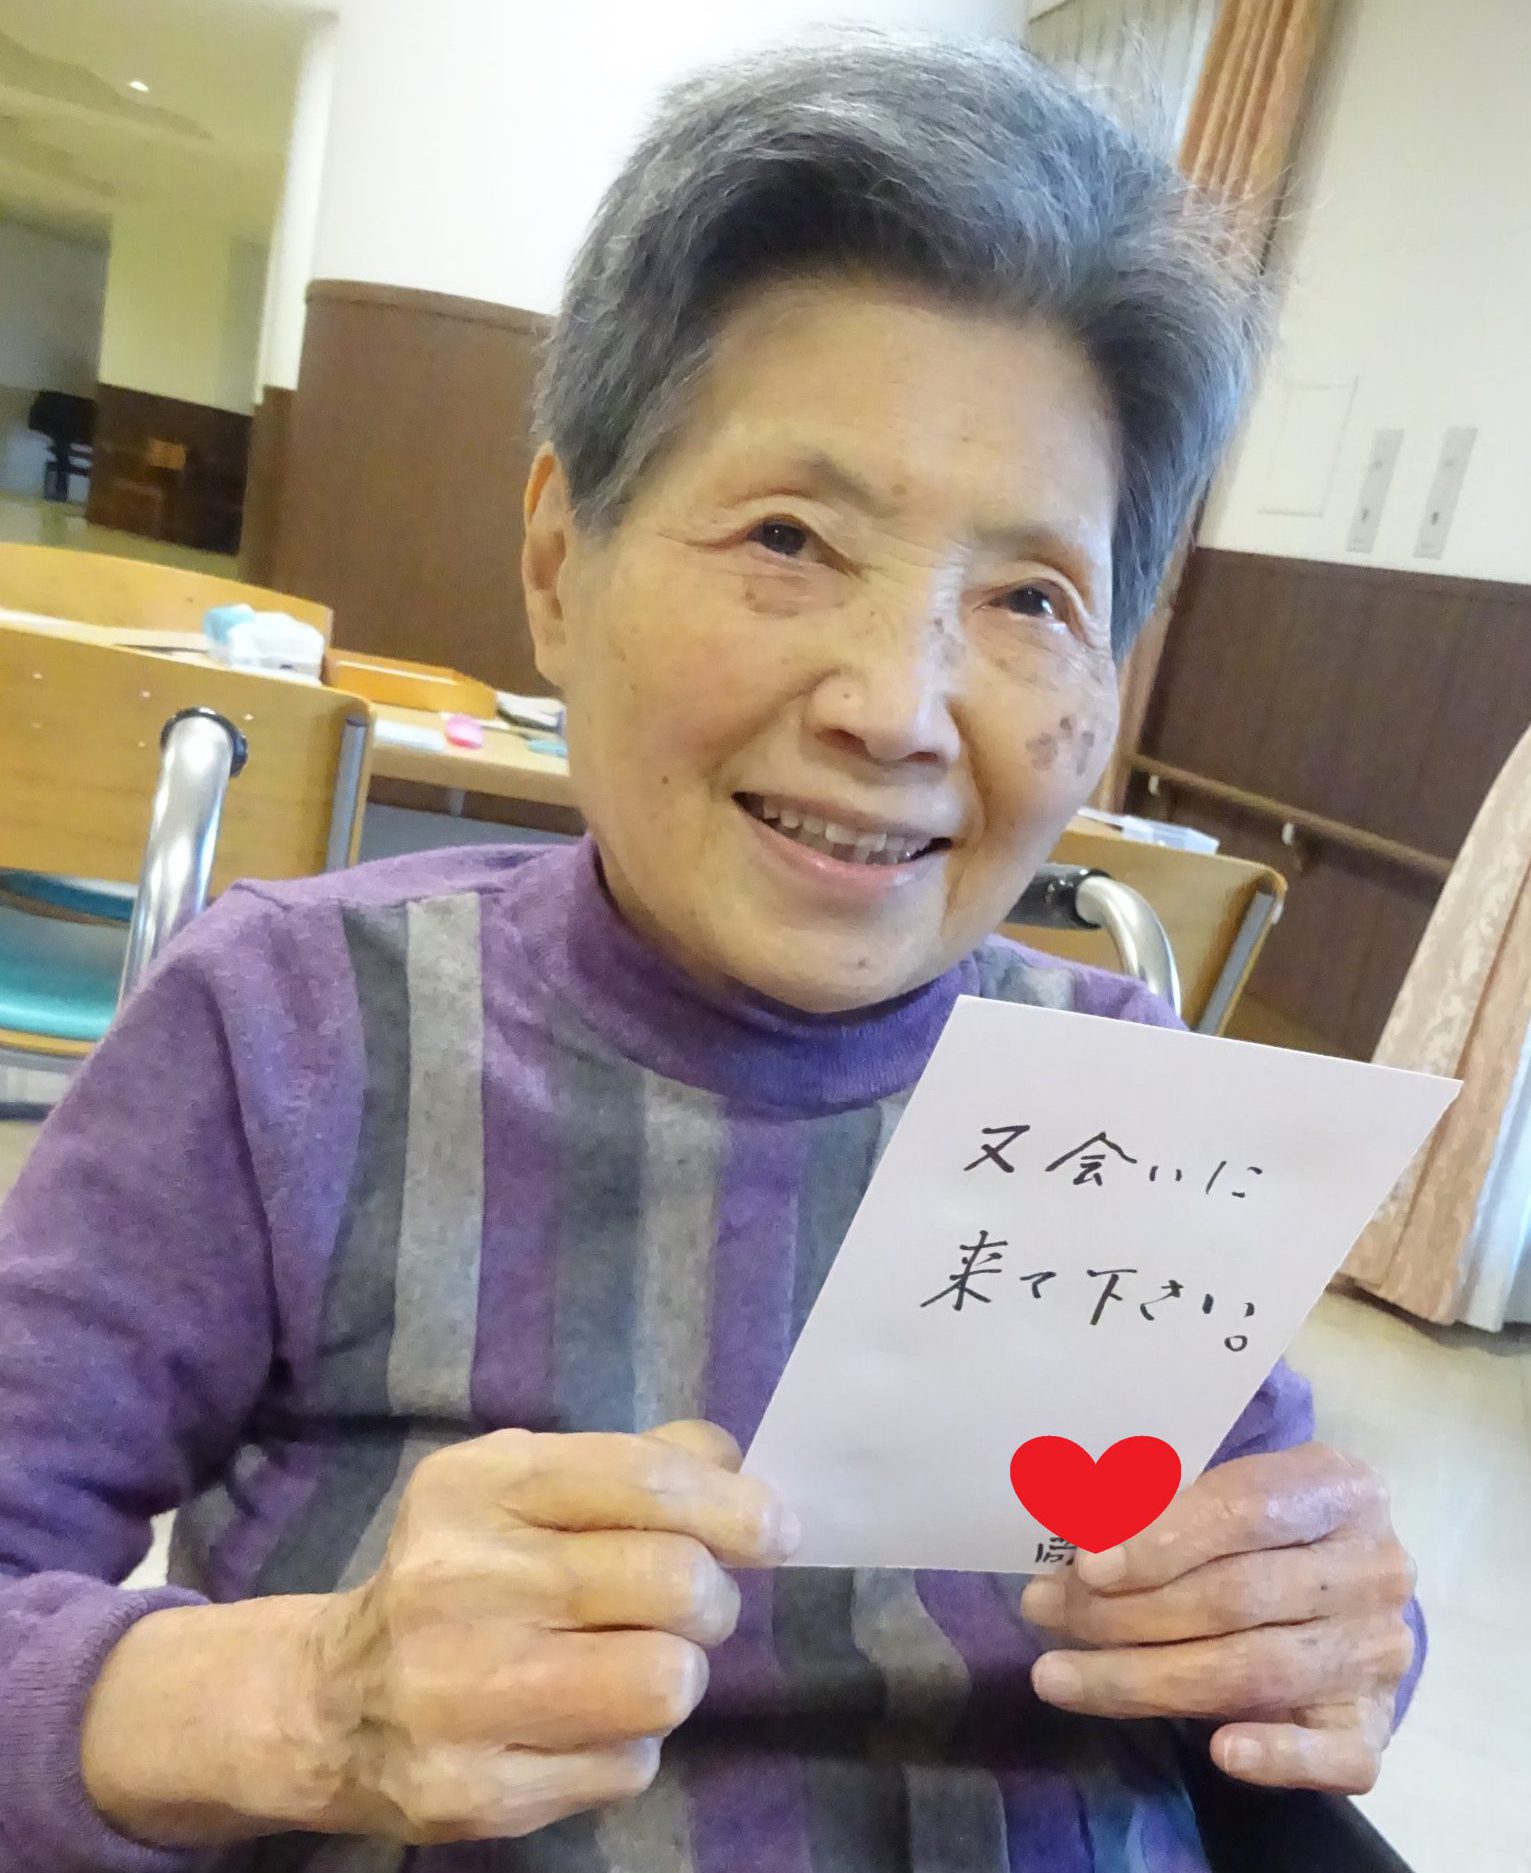 又会いに
来て下さい。